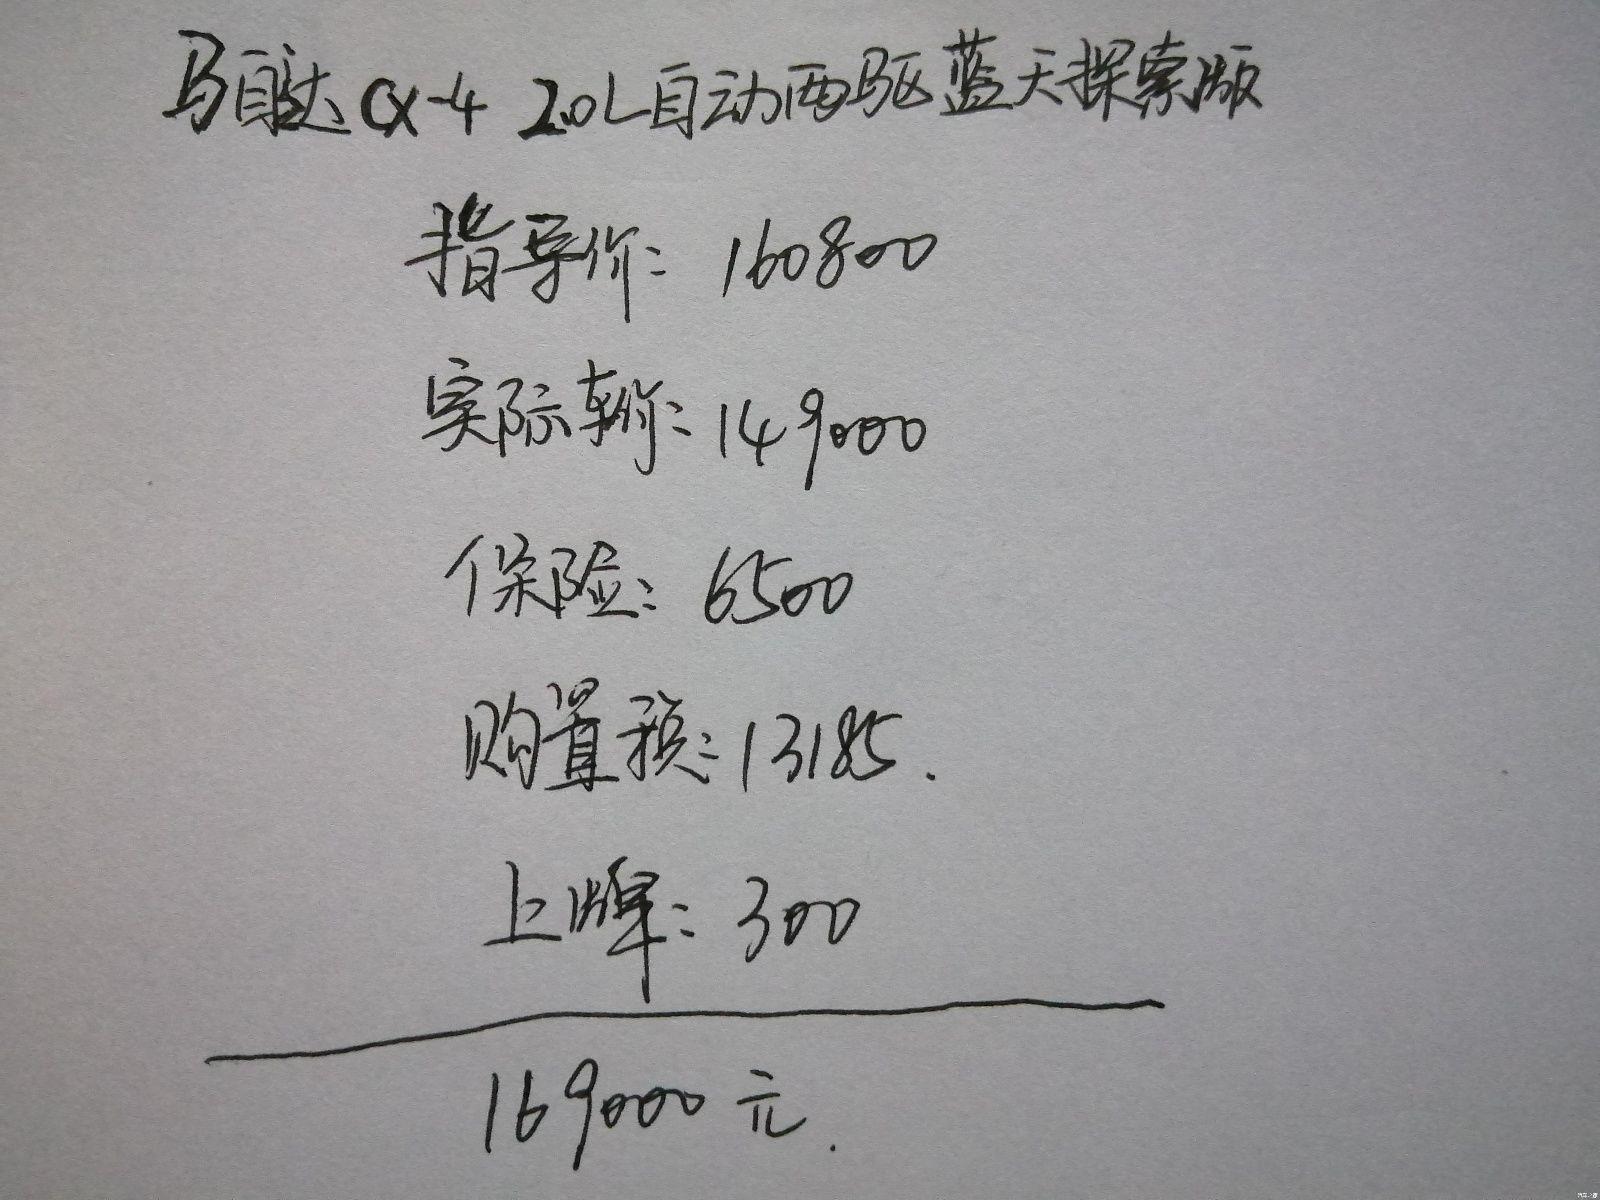 马自达CX-4 2.0L自动两驱蓝天探索版
指导价：160800
实际车价：149000
保险：6500
购置税：13185.
上牌：300
169000元.
汽车之家